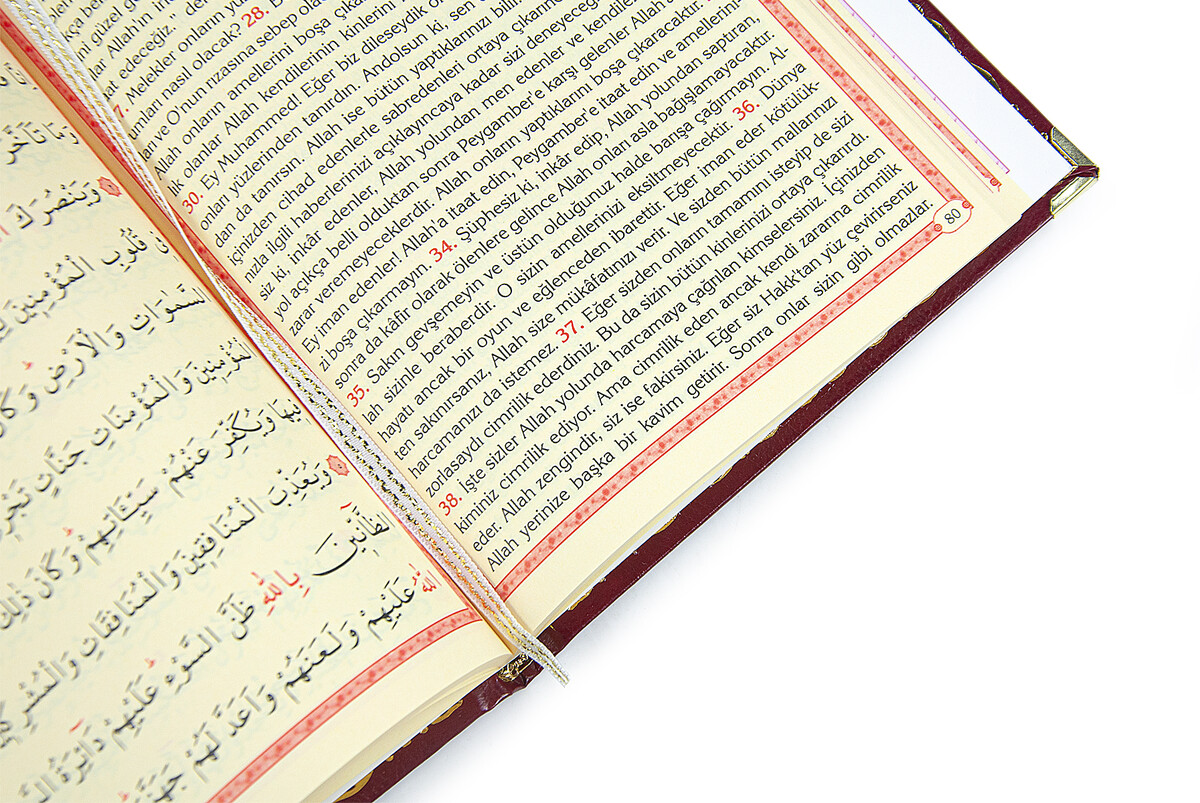 ni güzel
Allah'ın
edeceğiz.
27. Melekler onların
nasıl olacak? 28.
ve O'nun rızasına sebep
Allah onların amellerini boşa
lik olanlar Allah kendilerinin kinlerini
30. Ey Muhammed! Eğer biz dileseydik
onları yüzlerinden tanırdın. Andolsun ki, sen
dan da tanırsın. Allah ise bütün yaptıklarınızı
içinizden cihad edenlerle sabredenleri ortaya
nızla ilgili haberlerinizi açıklayıncaya kadar sizi
siz ki, inkâr edenler, Allah yolundan men edenler ve
yol açıkça belli olduktan sonra Peygamber'e karşı gelenler
zarar veremeyeceklerdir. Allah onların yaptıklarını boşa çıkaracaktır.
Ey iman edenler! Allah'a itaat edin, Peygamber'e itaat edin ve amellerini-
zi boşa çıkarmayın. 34. Şüphesiz ki, inkâr edip, Allah yolundan saptıran,
sonra da kâfir olarak ölenlere gelince Allah onları asla bağışlamayacaktır.
35. Sakın gevşemeyin ve üstün olduğunuz halde barışa çağırmayın. Al-
lah sizinle beraberdir. O sizin amellerinizi eksiltmeyecektir. 36. Dünya
hayatı ancak bir oyun ve eğlenceden ibarettir. Eğer iman eder kötülük-
ten sakınırsanız, Allah size mükâfatınızı verir. Ve sizden bütün mallarınızı
harcamanızı da istemez. 37. Eğer sizden onların tamamını isteyip de sizi
zorlasaydı cimrilik ederdiniz. Bu da sizin bütün kinlerinizi ortaya çıkarırdı.
38. İşte sizler Allah yolunda harcamaya çağrılan kimselersiniz. İçinizden
kiminiz cimrilik ediyor. Ama cimrilik eden ancak kendi zararına cimrilik
eder. Allah zengindir, siz ise fakirsiniz. Eğer siz Hakk'tan yüz çevirirseniz
Allah yerinize başka bir kavim getirir. Sonra onlar sizin gibi olmazlar.
80
تَاَخَّرَ
وَيَنْصُرَكَ
قُلُوبِ الْمُؤْمِنِينَ
السَّمٰوَاتِ وَالْاَرْضِ وَكَانَ
الْمُؤْمِنِينَ وَالْمُؤْمِنَاتِ جَنَّاتٍ تَجْرِي
فِيهَا وَيُكَفِّرَ عَنْهُمْ سَيِّـَٔاتِهِمْ وَكَانَ ذٰلِكَ
وَيُعَذِّبَ الْمُنَافِقِينَ وَالْمُنَافِقَاتِ وَالْمُشْرِكِينَ
الظَّٓانِّينَ بِاللّٰهِ ظَنَّ السَّوْءِ عَلَيْهِمْ دَٓائِرَةُ
اللّٰهُ عَلَيْهِمْ وَلَعَنَهُمْ وَاَعَدَّ لَهُمْ جَهَنَّمَ